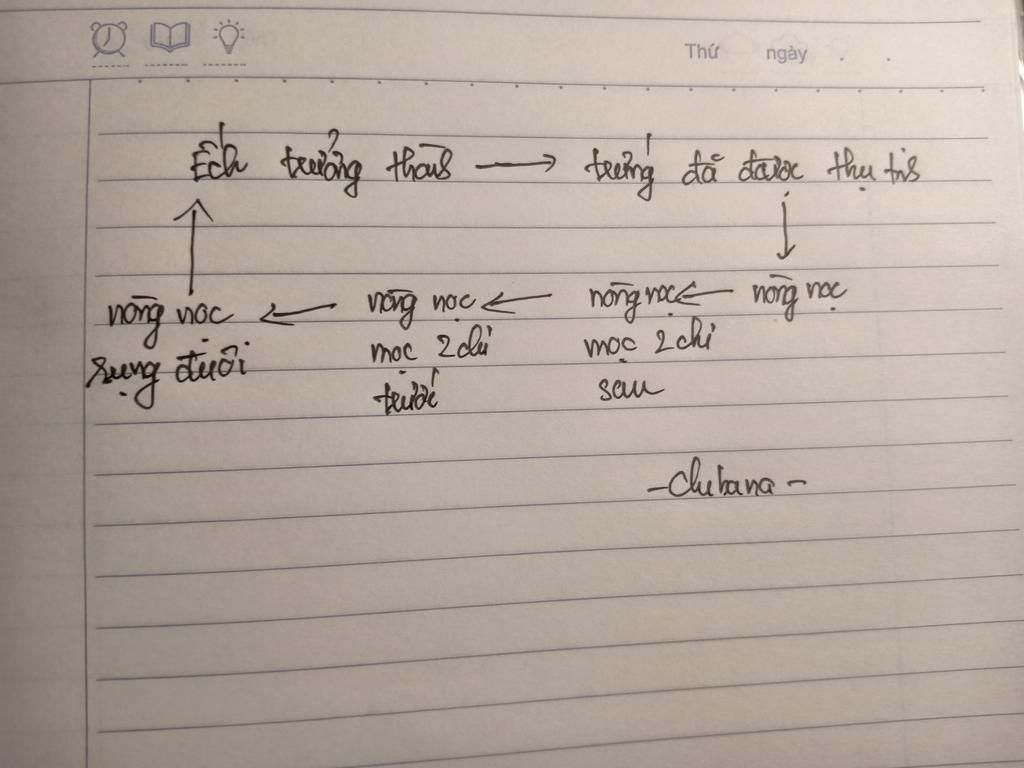 Thứ ngày . .
Ếch trưởng thành → trứng đã được thụ tinh
↓
↑
nòng nọc ← nòng nọc ← nòng nọc ← nòng nọc
rụng đuôi
mọc 2 chi
trước
mọc 2 chi
sau
- Chibana -